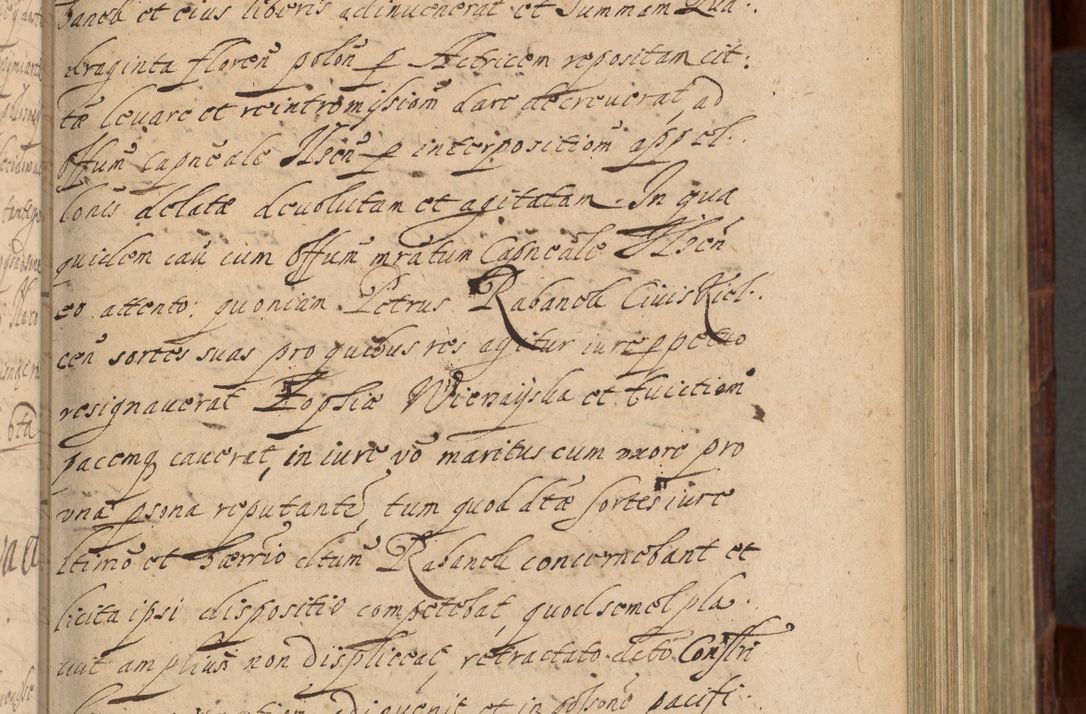 banek et eius liberis adinuenerat et Summam Qua.
draginta floren polon p Actricem repositam cit:
tæ leuare et reintromissiom dare decreuerat, ad
offum capneale Ilsen p interpositiom appel.
lonis delatæ deuolutam et agitatam. In qua
quidem cau cum offum mratum Capneale Ilsen
eo attento: quoniam Petrus Rabanek Ciuis Kiel.
cen sortes suas pro quibus res agitur iure ppetuo
resignauerat Zophiæ et tuitiem
pacemq cauerat, in iure vo maritus cum vxore pro
vna psona reputante, tum quod dtæ sortes iure
ltimo et hærrio dtum Rabanek concernebant et
licita ipsi dispositio competebat, quod semel pla.
cuit amplius non displiceat, retractato debo Consstri
adiquenit et in psone pacifi.